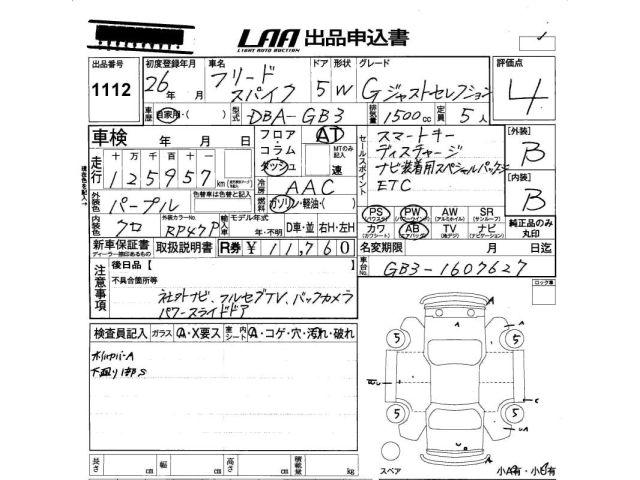 LAA 出品申込書
LIGHT AUTO AUCTION
出品番号 初度登録年月 車名 ドア 形状 グレード 評価点
1112 26年 月 フリード スパイク 5 W Gジャストセレクション 4
車歴 自家用・( ) 型式 DBA-GB3 排気量 1500cc 定員 5人
車検 年 月 日 フロア・コラム ダッシュ AT MTのみ記入 速
セールスポイント スマートキー
ディスチャージ
ナビ装着用スペシャルパッケージ
ETC
[外装] B
[内装] B
走行 十万 万 千 百 十 一
125957 km
冷房 AAC
燃料 ガソリン・軽油・( )
外装色 パープル 色替車は色替と記入
内装色 クロ 外装カラーNo. RP47P 輸入車 モデル年式 年・不明 D車・並 右H・左H
PS (パワステ) PW (パワーウインド) AW (アルミホイル) SR (サンルーフ)
カワ (カワシート) AB (エアバッグ) TV (地デジ) ナビ (ナビゲーション)
純正品のみ丸印
新車保証書 取扱説明書 R券 ¥11,760 名変期限 月 日迄
ディーラー捺印あるもの
車台No. GB3-1607627
注意事項 後日品【
不具合箇所等
社外ナビ、フルセグTV、バックカメラ
パワースライドドア
ロック車
検査員記入 ガラス A・X要ス 室内シート A・コゲ・穴・汚れ・破れ
下廻り部S
5 5
5 5
スペア 小A有・小凹有
長さ cm 幅 cm 高さ cm 積載量 kg